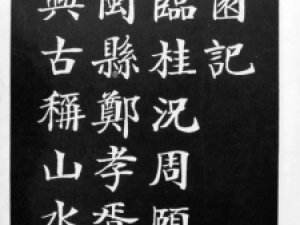 園記
臨桂況周頤
閩縣鄭孝胥
興古稱山水